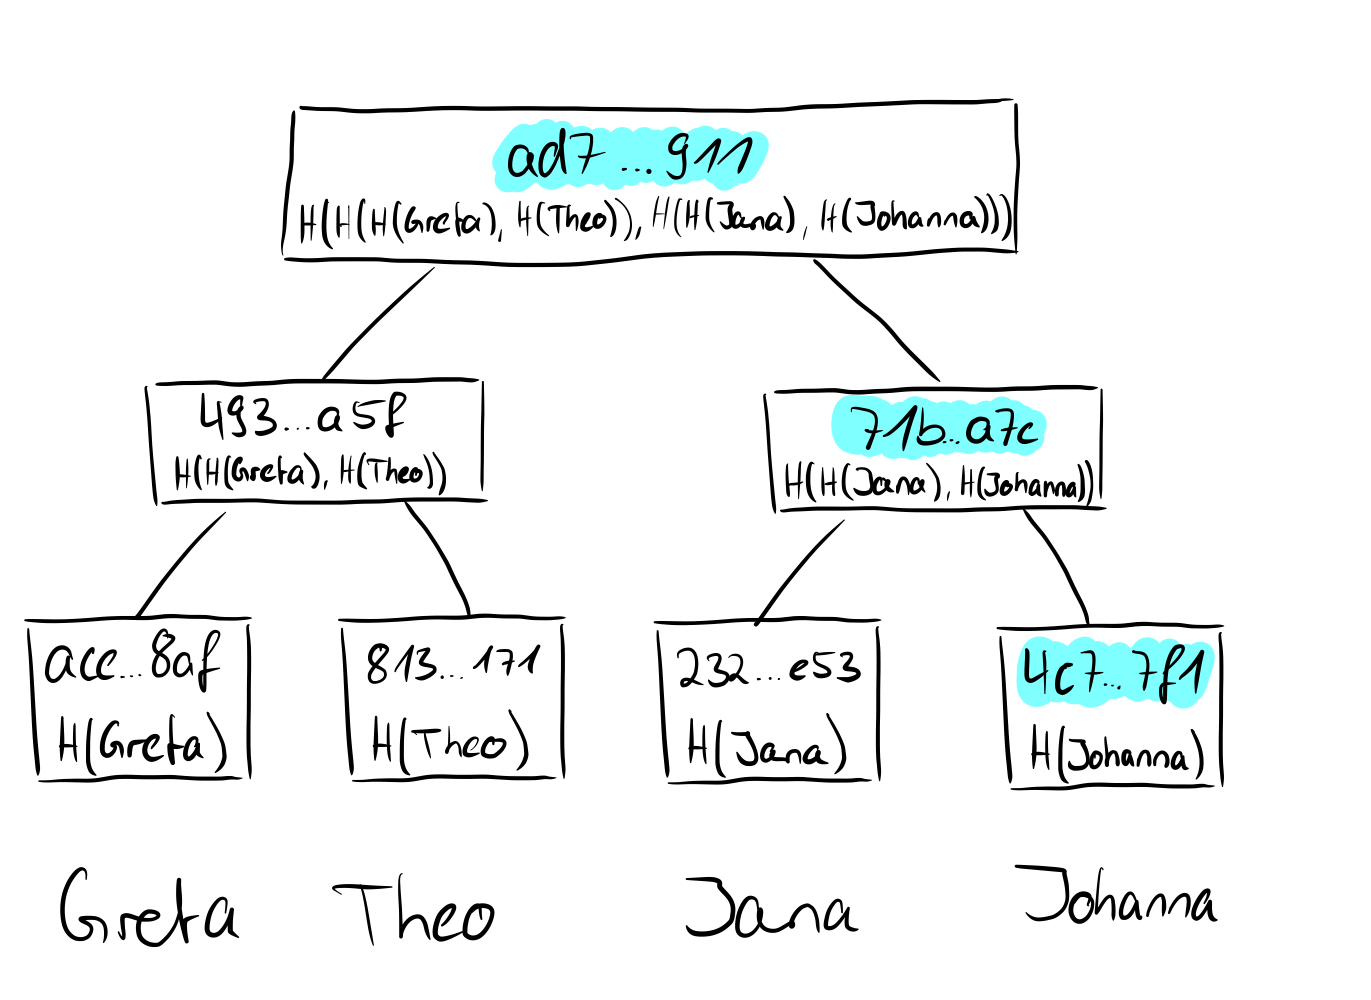 ad7...911
H(H(H(Greta), H(Theo)), H(H(Jana), H(Johanna)))
493...a5f
H(H(Greta), H(Theo))
71b...a7c
H(H(Jana), H(Johanna))
acc...8af
H(Greta)
813...171
H(Theo)
232...e53
H(Jana)
4c7...7f1
H(Johanna)
Greta
Theo
Jana
Johanna